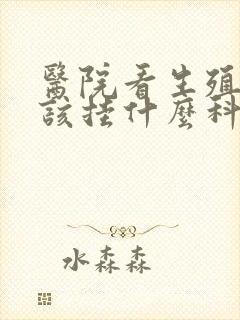 醫院看生殖
該挂什麼科
水森森